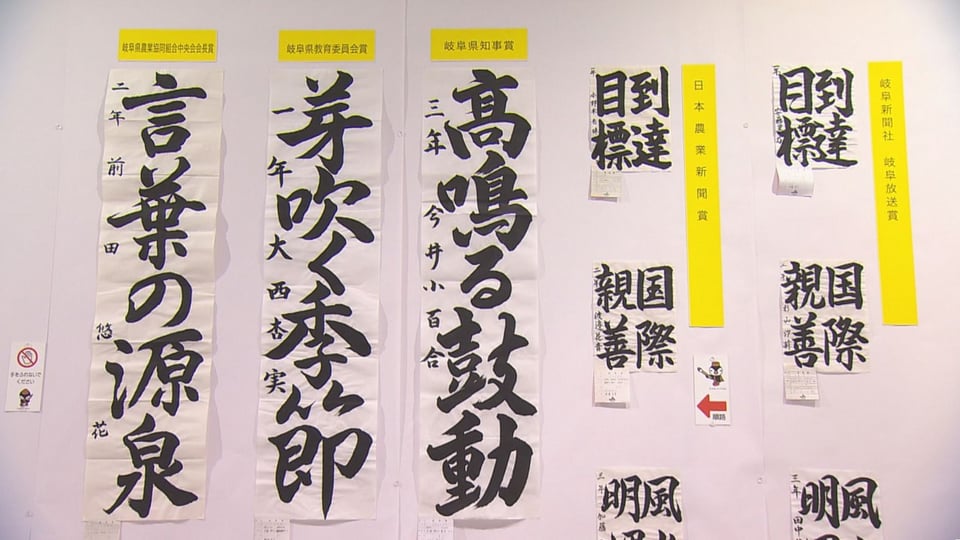 岐阜県農業協同組合中央会会長賞
岐阜県教育委員会賞
岐阜県知事賞
日本農業新聞賞
岐阜新聞社 岐阜放送賞
高鳴る鼓動
三年 今井小百合
芽吹く季節
一年 大西杏実
言葉の源泉
二年 前田悠花
到達
目標
到達
目標
国際
親善
国際
親善
風
明
三年 加藤
風
明
三年 田中
手をふれないで
ください
順路